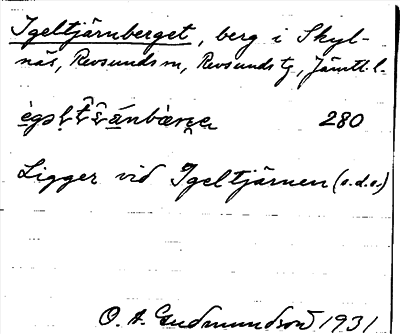 Igeltjärnberget, berg i Skyl-
näs, Revsunds sn, Revsunds tg, Jämtl. l.
280
Ligger vid Igeltjärnen (s.d.o.)
O. A. Gudmundsson 1931